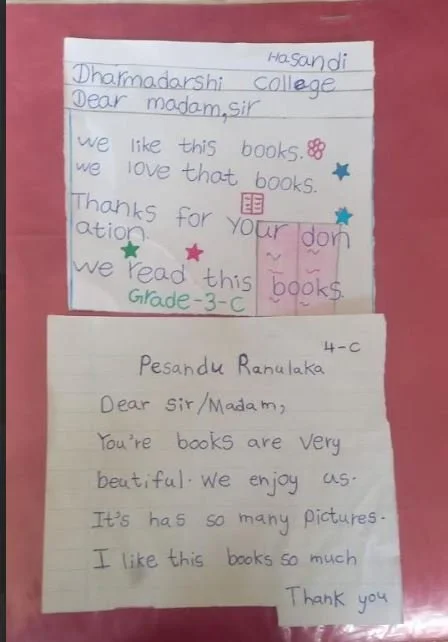 Hasandi
Dharmadarshi College
Dear madam,sir
we like this books.
we love that books.
Thanks for your don
ation.
we read this books.
Grade-3-C
4-C
Pesandu Ranulaka
Dear Sir/Madam,
You're books are very
beutiful. We enjoy us.
It's has so many Pictures.
I like this books so much
Thank you